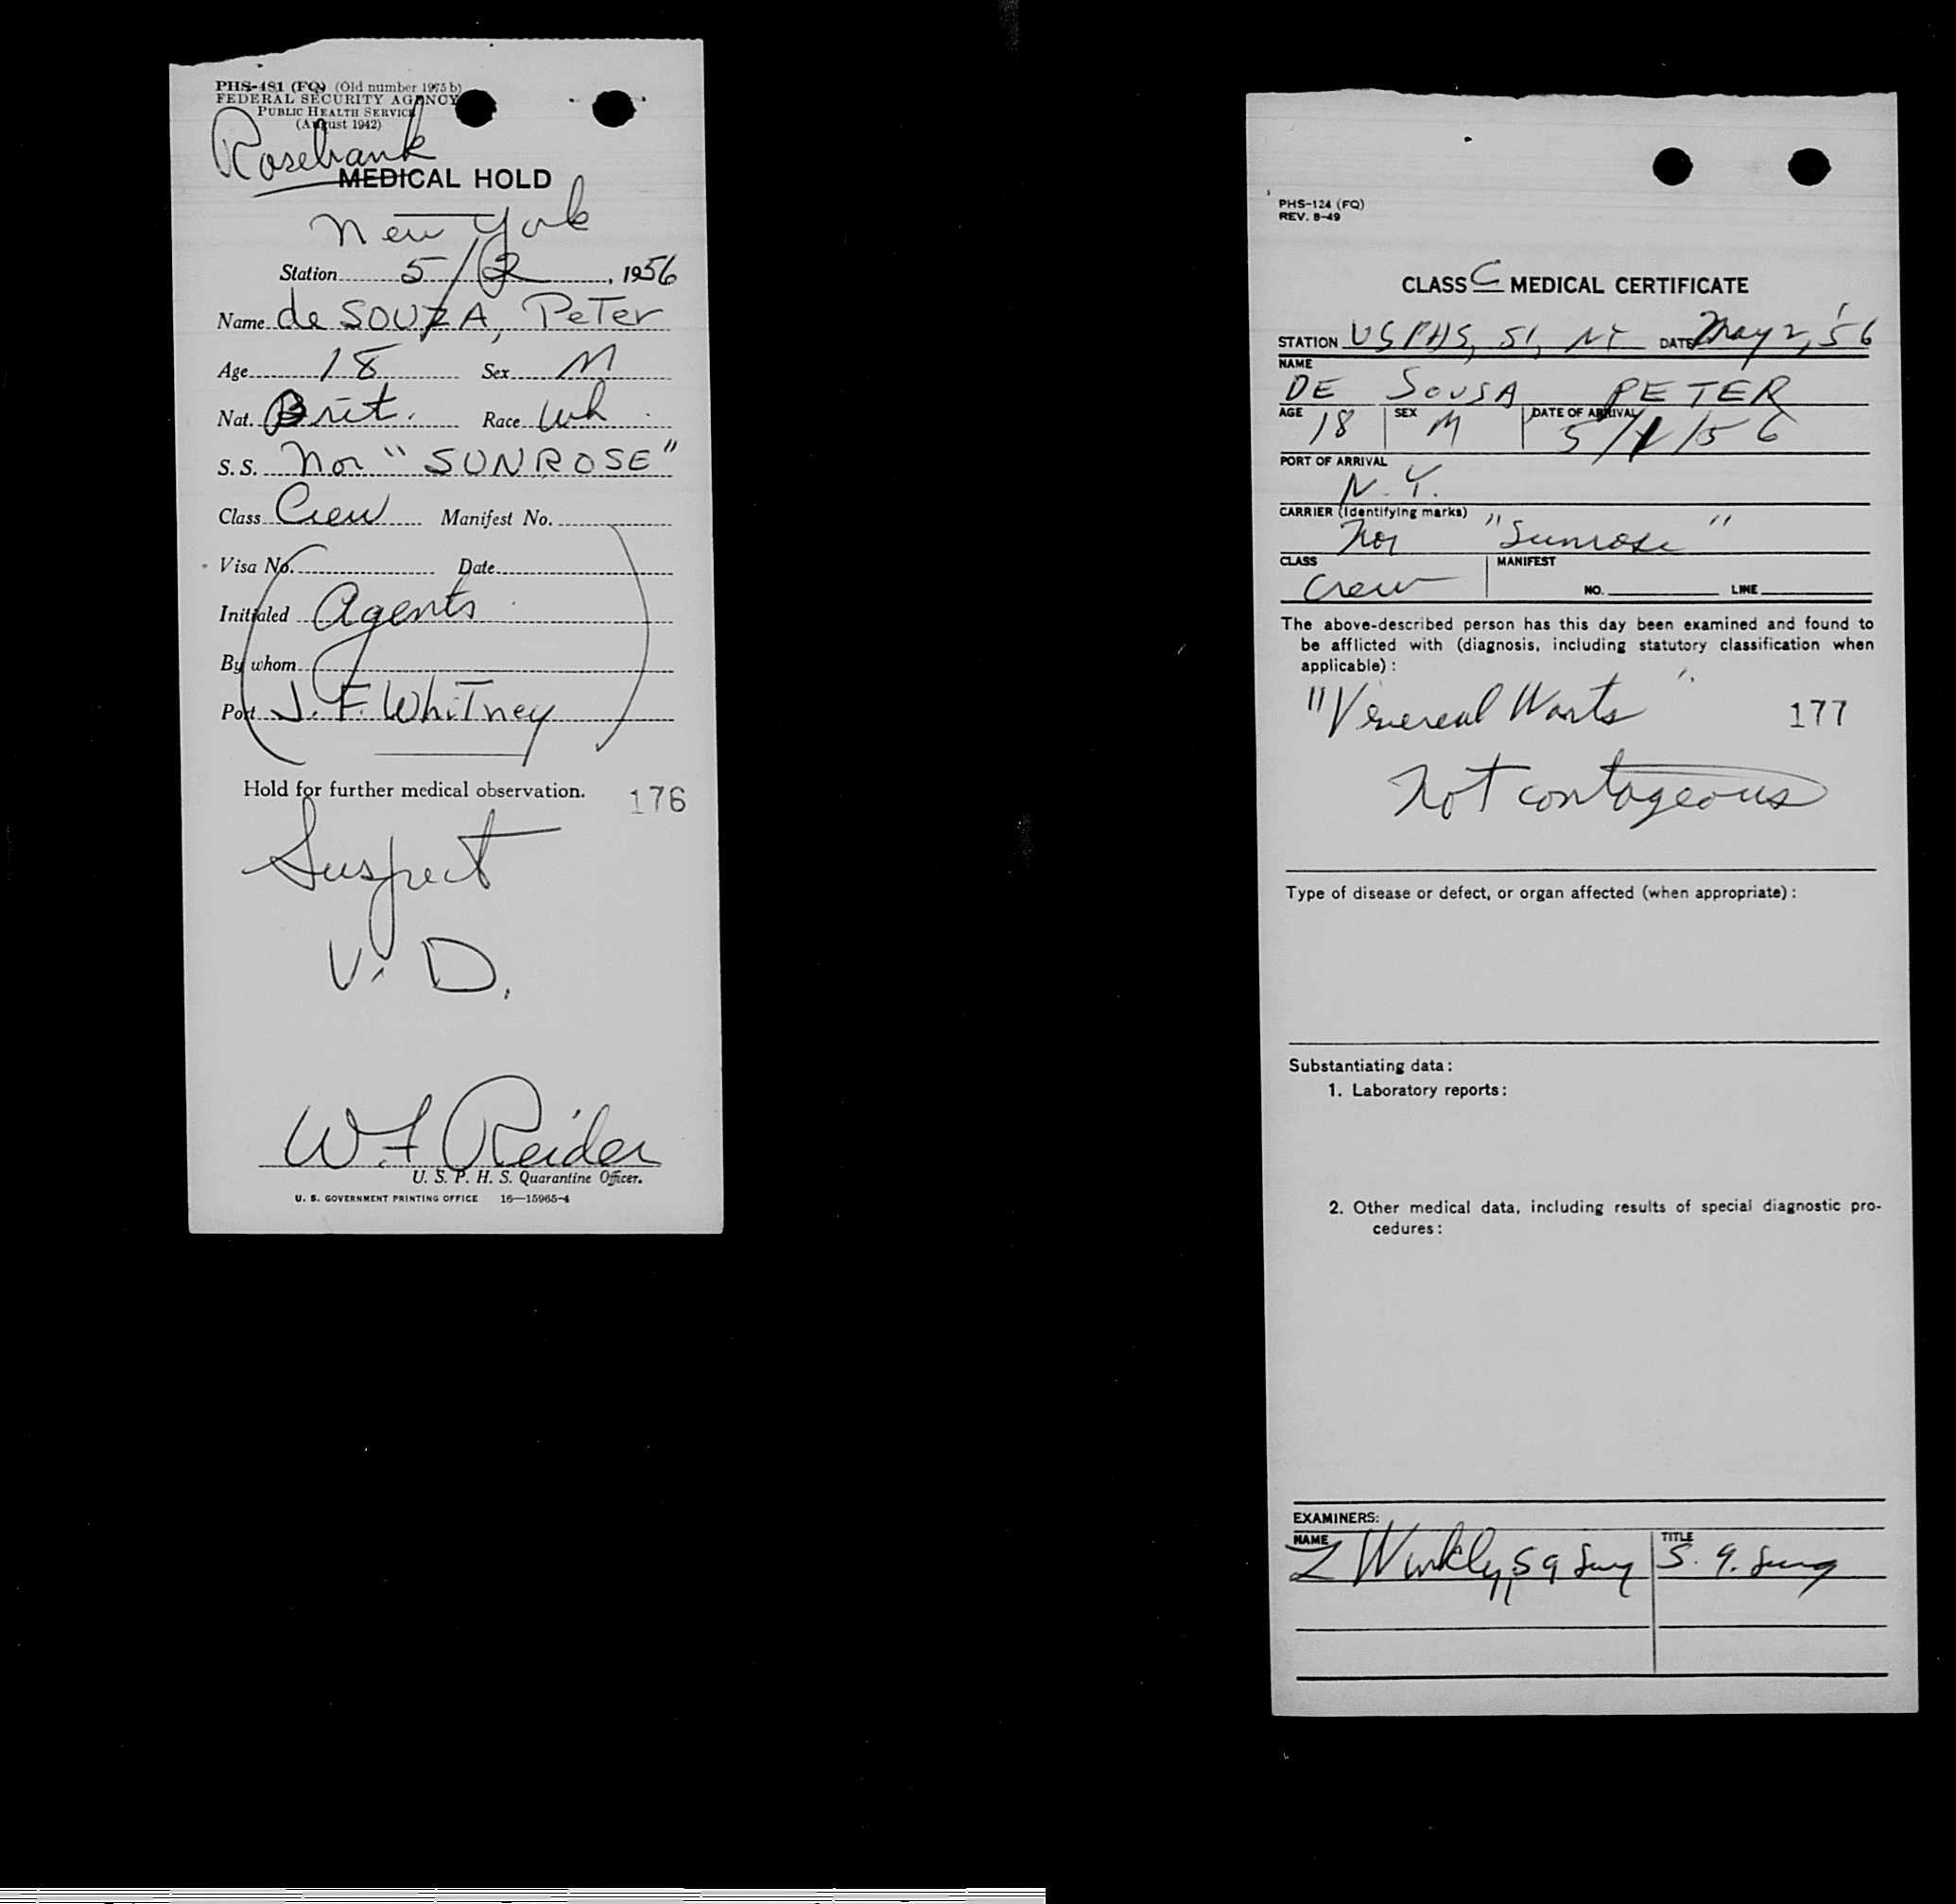 PHS-481 (FQ) (Old number 1975 b)
FEDERAL SECURITY AGENCY
PUBLIC HEALTH SERVICE
(August 1942)
Rosebank
MEDICAL HOLD
New York
Station 5/2, 1956
Name de SOUZA, PeTer
Age 18 Sex M
Nat. Brit. Race Wh
S. S. Nor "SUNROSE"
Class Crew Manifest No.
Visa No. Date
Initialed Agents
By whom
Port J. F. WhiTney
Hold for further medical observation. 176
Suspect
V. D.
W F Reider
U. S. P. H. S. Quarantine Officer.
U. S. GOVERNMENT PRINTING OFFICE 16—15965-4
PHS-124 (FQ)
REV. 8-49
CLASS C MEDICAL CERTIFICATE
STATION USPHS, SI, NY DATE May 2, '56
NAME
DE SOUSA PETER
AGE 18 SEX M DATE OF ARRIVAL 5/1/56
PORT OF ARRIVAL
N. Y.
CARRIER (Identifying marks)
Nor "Sunrose"
CLASS MANIFEST
Crew NO. LINE
The above-described person has this day been examined and found to
be afflicted with (diagnosis, including statutory classification when
applicable):
"Venereal Warts" 177
Not contageous
Type of disease or defect, or organ affected (when appropriate):
Substantiating data:
1. Laboratory reports:
2. Other medical data, including results of special diagnostic pro-
cedures:
EXAMINERS:
NAME TITLE